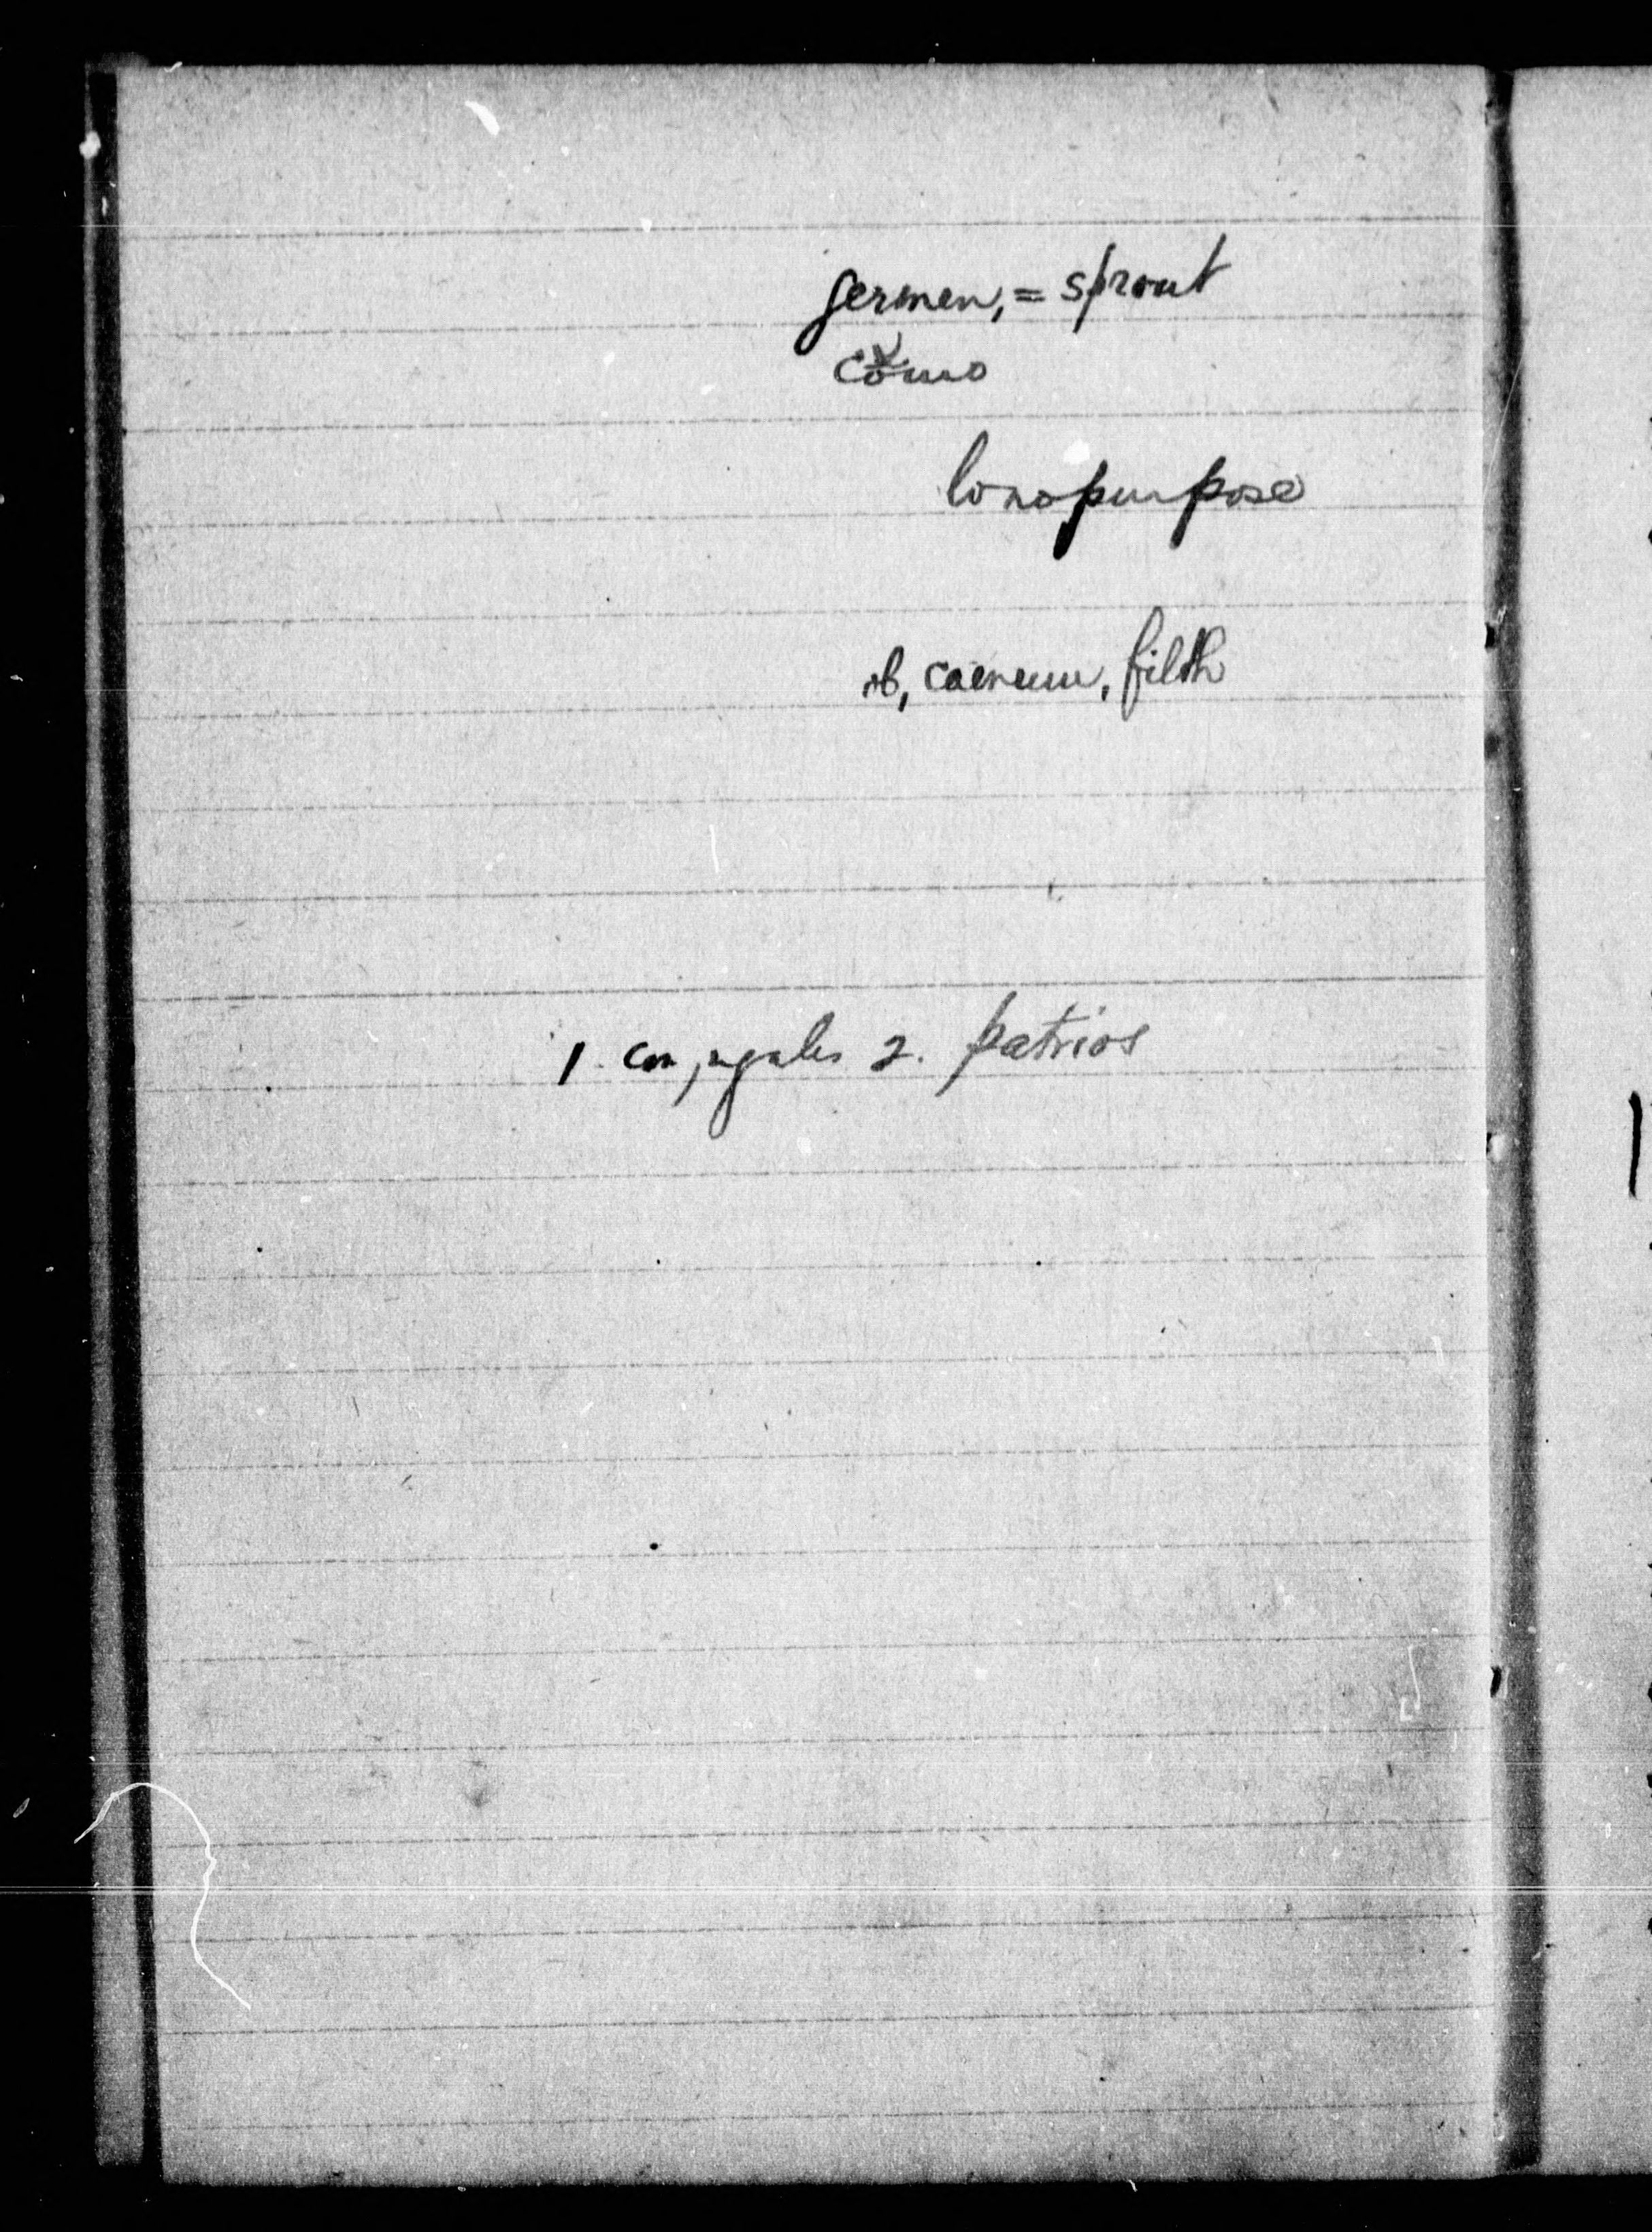 germen, = sprout
como
to no purpose
ob, caenum, filth
1. conjugales 2. patrios